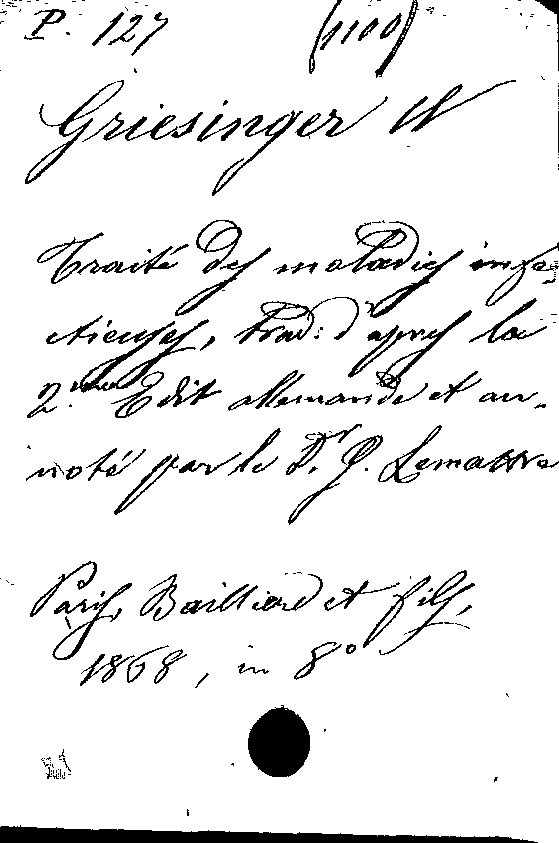 P. 127 (1100)
Griesinger W
Traité des maladies infe-
ctieuses, trad: d'après la
2.me Edit allemande et an-
noté par le Dr. G. Lemattre
Paris, Bailliard et fils,
1868, in 8°